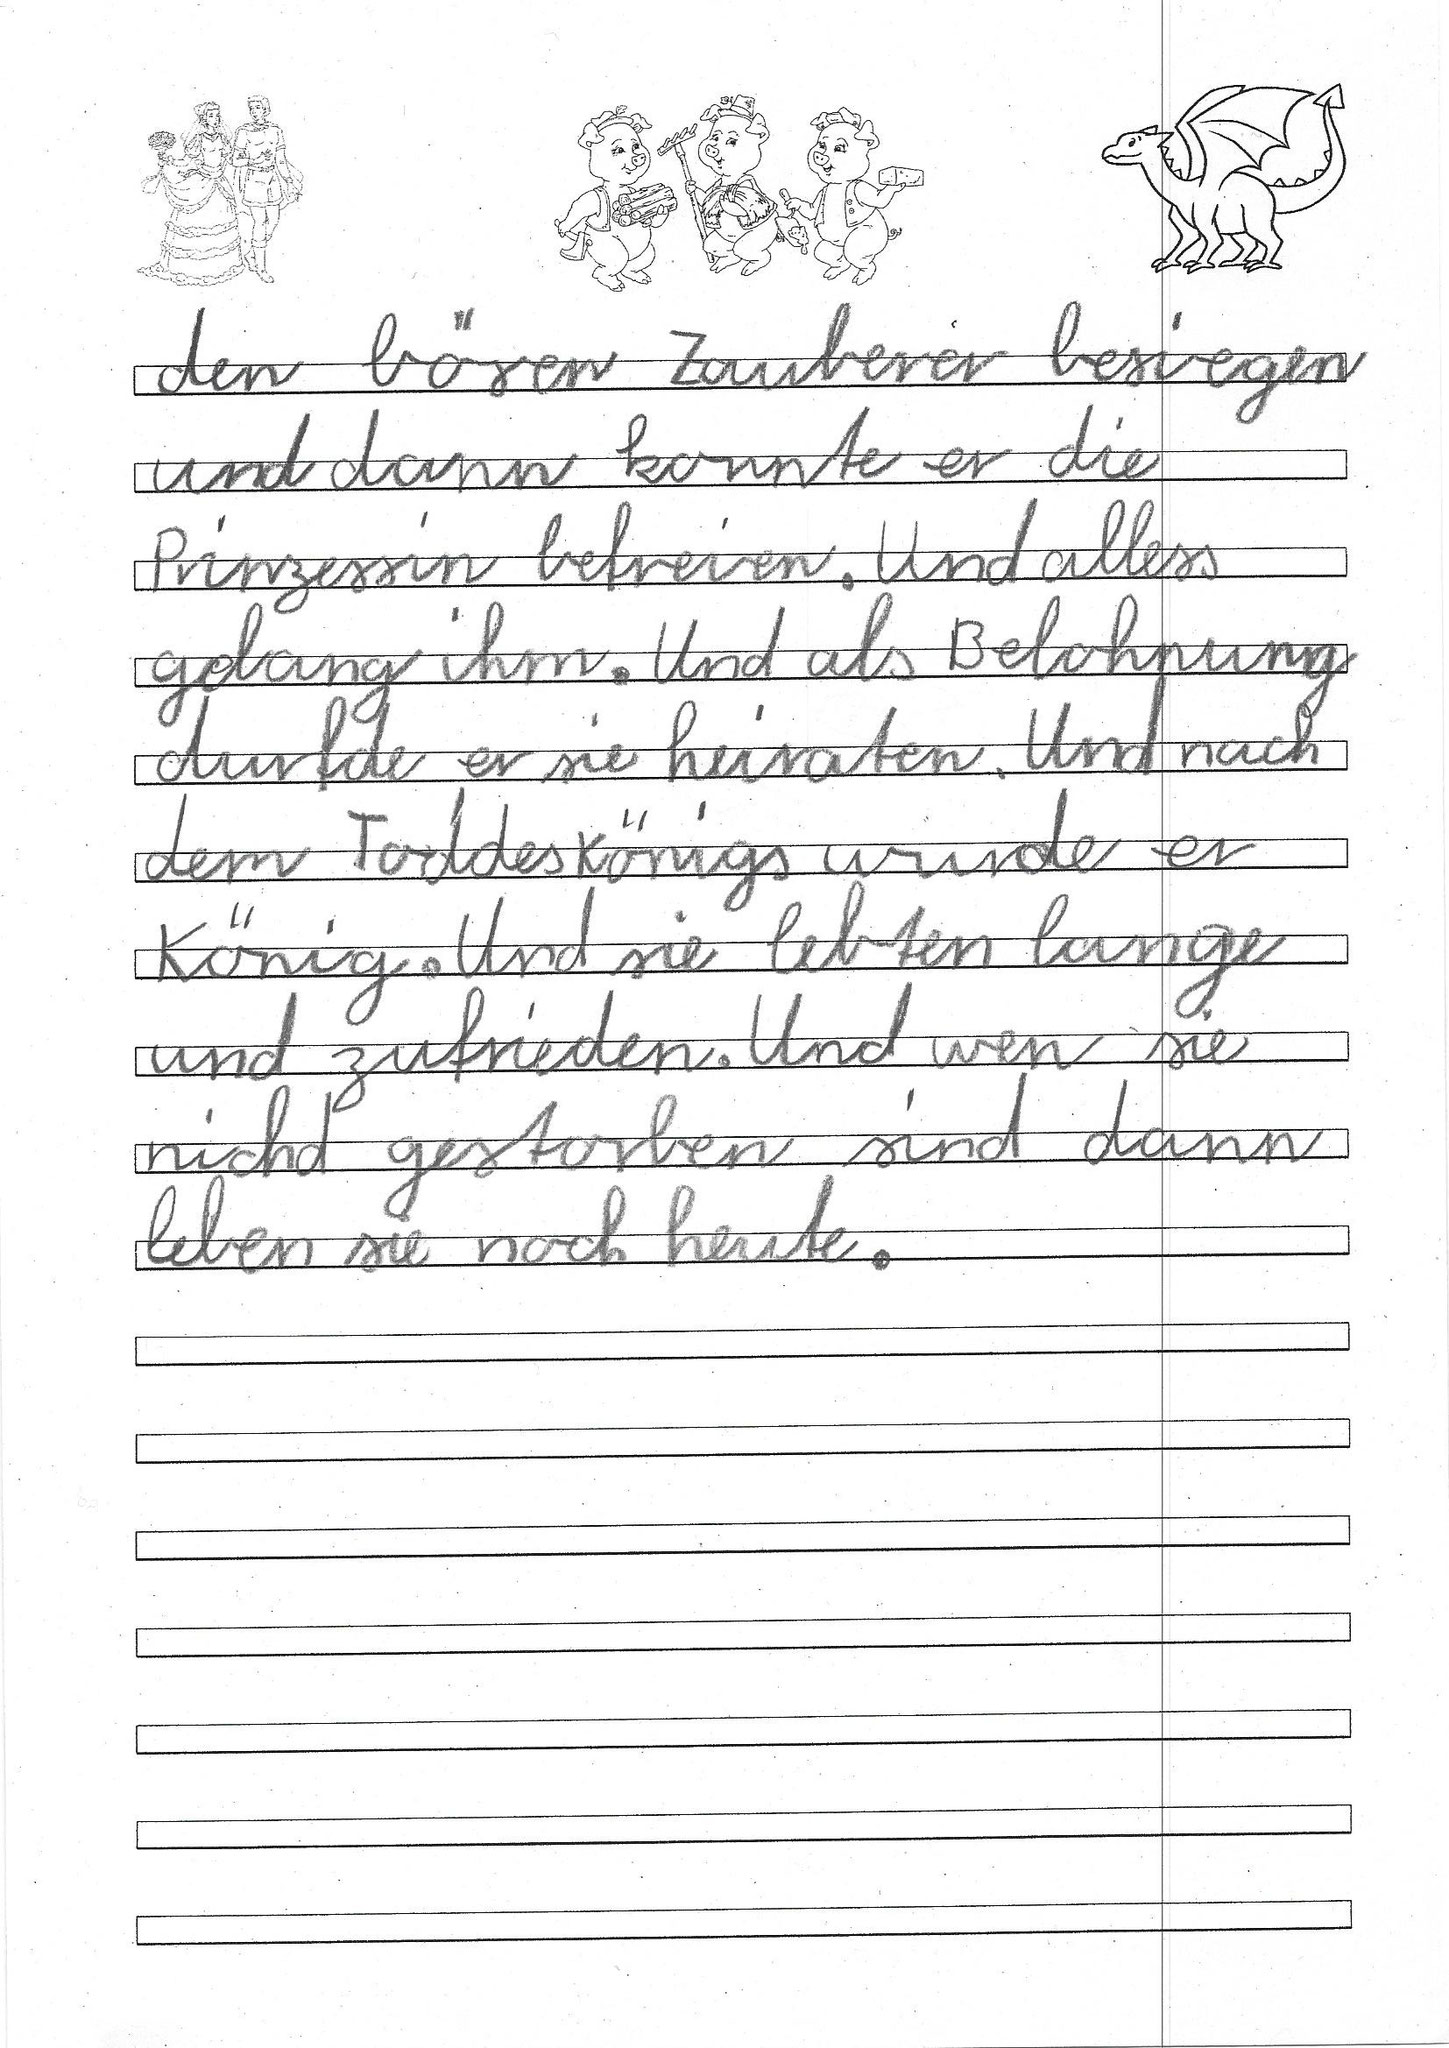 den bösen Zauberer besiegen
und dann konnte er die
Prinzessin befreien. Und alless
gelang ihm. Und als Belohnung
durfde er sie heiraten. Und nach
dem Toddes Königs wurde er
König. Und sie lebten lange
und zufrieden. Und wen sie
nichd gestorben sind dann
leben sie noch heute.